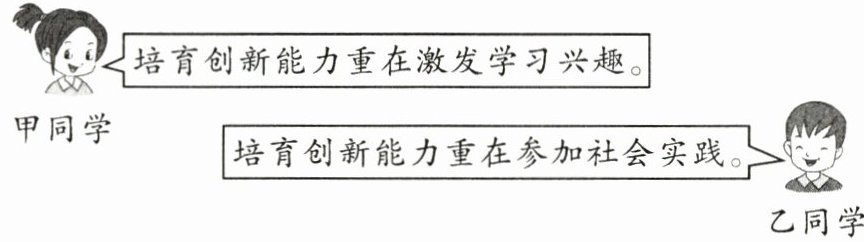 培育创新能力重在激发学习兴趣。
甲同学
培育创新能力重在参加社会实践。
乙同学